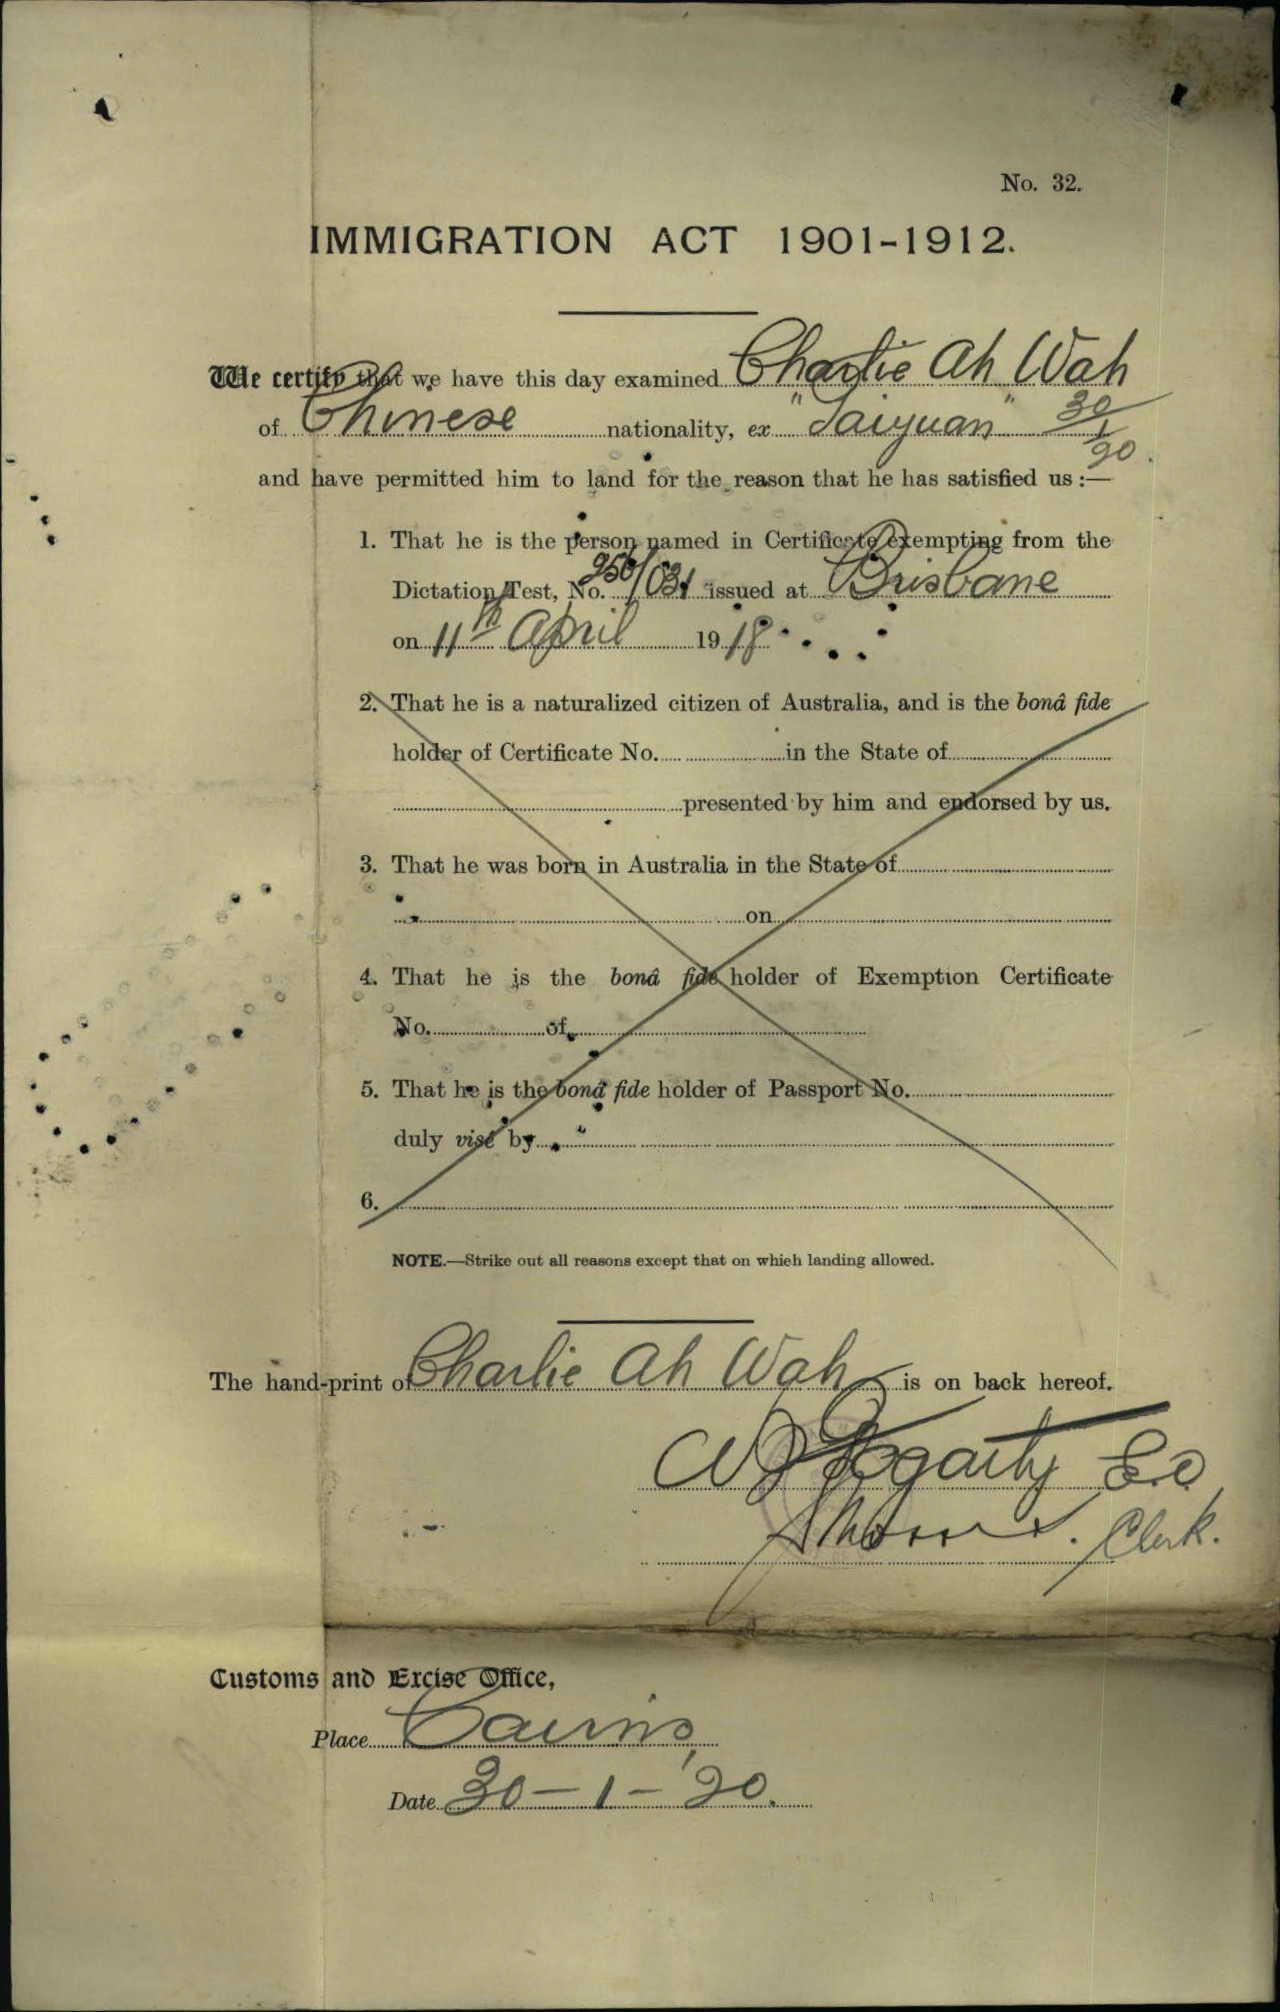 No. 32.
IMMIGRATION ACT 1901-1912.
We certify that we have this day examined Charlie Ah Wah
of Chinese nationality, ex "Taiyuan" 30/1/20.
and have permitted him to land for the reason that he has satisfied us :—
1. That he is the person named in Certificate exempting from the
Dictation Test, No. 250/031 issued at Brisbane
on 11th April 1918
2. That he is a naturalized citizen of Australia, and is the bonâ fide
holder of Certificate No. in the State of
presented by him and endorsed by us.
3. That he was born in Australia in the State of
on
4. That he is the bonâ fide holder of Exemption Certificate
No. of
5. That he is the bonâ fide holder of Passport No.
duly visé by
6.
NOTE.—Strike out all reasons except that on which landing allowed.
The hand-print of Charlie Ah Wah is on back hereof.
Fogarty E.O
Clerk.
Customs and Excise Office,
Place Cairns,
Date 30-1-'20.